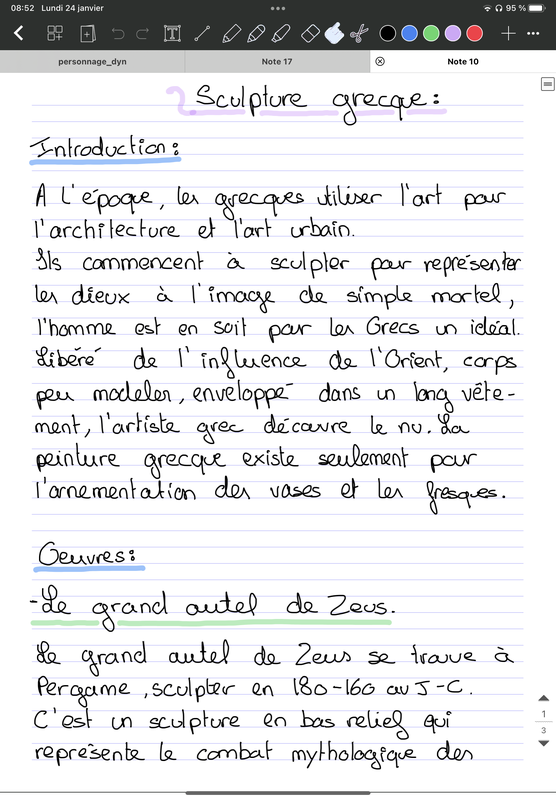 08:52 Lundi 24 janvier
95 %
personnage_dyn
Note 17
Note 10
Sculpture grecque :
Introduction :
A l'époque, les grecques utiliser l'art pour
l'architecture et l'art urbain.
Ils commencent à sculpter pour représenter
les dieux à l'image de simple mortel,
l'homme est en soit pour les Grecs un idéal.
Libéré de l'influence de l'Orient, corps
peu modeler, enveloppé dans un long vête-
ment, l'artiste grec découvre le nu. La
peinture grecque existe seulement pour
l'ornementation des vases et les fresques.
Oeuvres :
-Le grand autel de Zeus.
Le grand autel de Zeus se trouve à
Pergame, sculpter en 180-160 av J-C.
C'est un sculpture en bas relief qui
représente le combat mythologique des
1
3